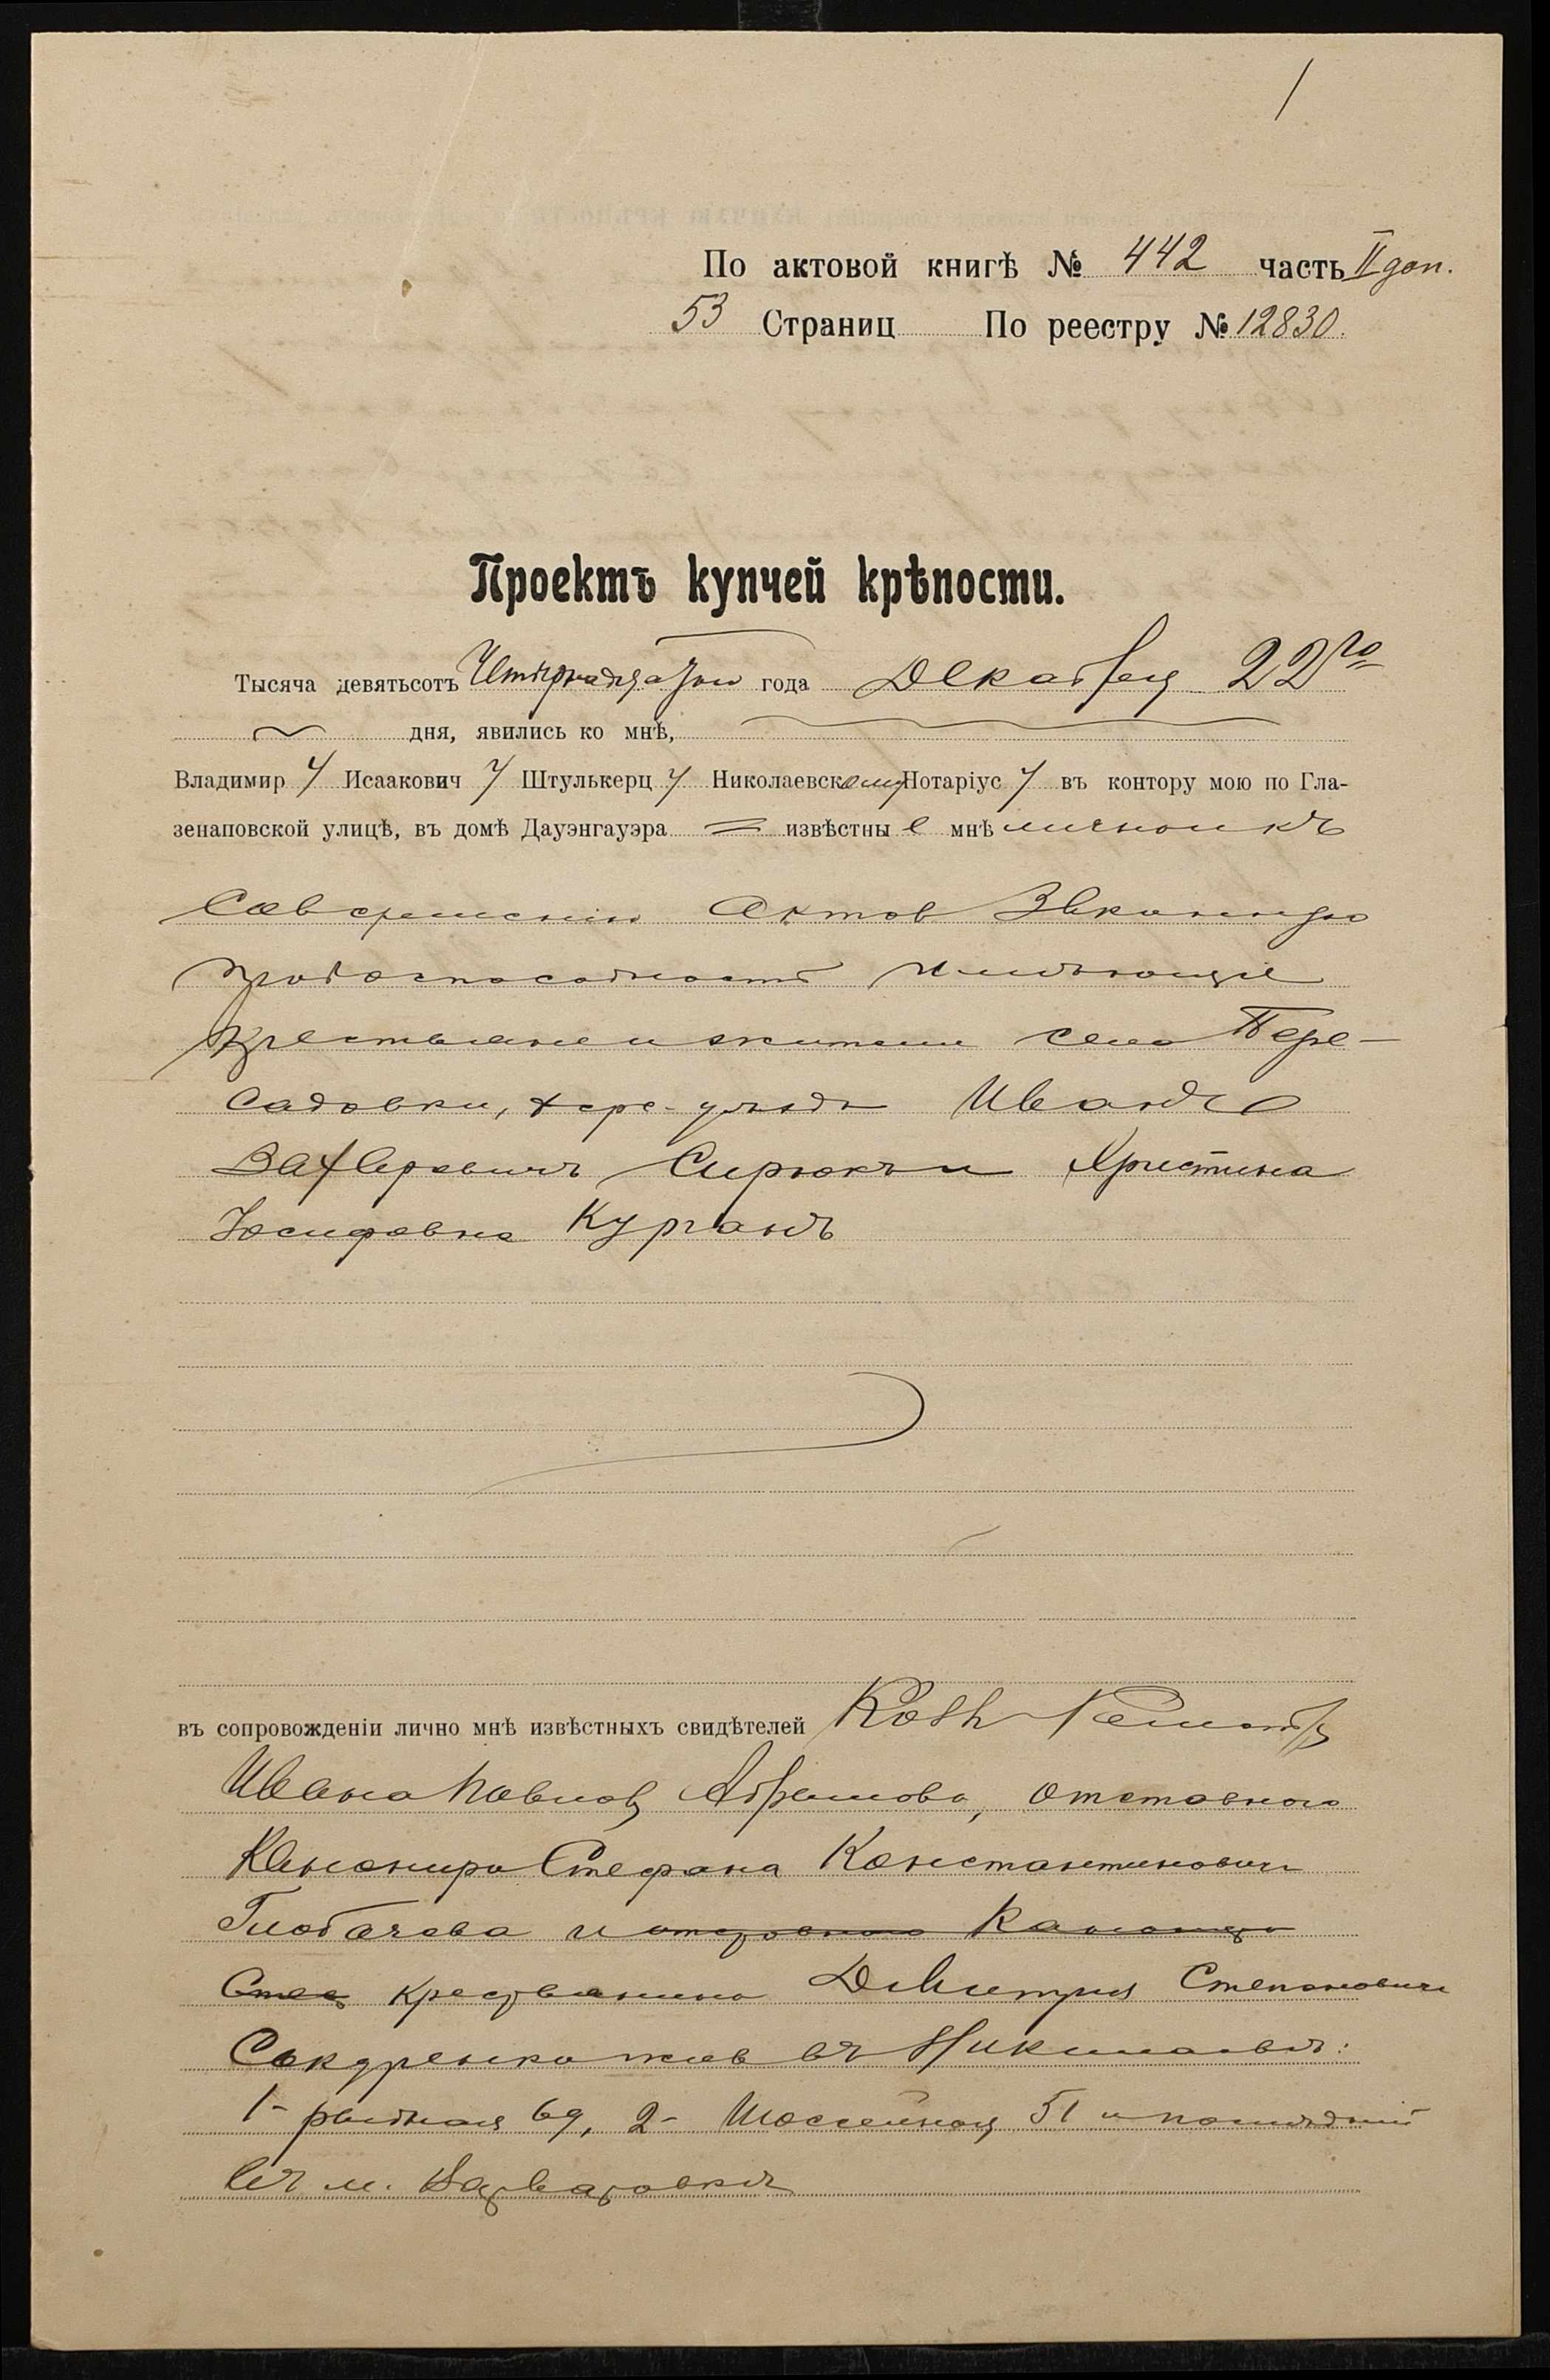 По актовой книгѣ № 442 часть II доп.
53 Страниц По реестру № 12830.
Проектъ купчей крѣпости.
Тысяча девятьсотъ Четырнадцатый года Декабря 22го
дня, явились ко мнѣ,
Владимир у Исаакович у Штулькерц у Николаевскому Нотаріус у въ контору мою по Гла-
зенаповской улицѣ, въ домѣ Дауэнгауэра извѣстны е мнѣ лично и къ
совершенію актов законную
правоспособность имѣющіе
Крестьяне и жители села Пере-
садовки, Херс. уѣзда Иванъ
Сирюкъ и Христина
Іосифовна Курганъ
въ сопровожденіи лично мнѣ извѣстныхъ свидѣтелей
Ивана Павлов Абрамова, отставного
Канонира Стефана Константинович
Глобачева и отставного Канонира
Стеф Крестьянина Димитрия Степанович
жив въ Николаевѣ:
1- рыбная 69, 2- Шоссейная 51 и послѣдній
въ м. Варваровкѣ